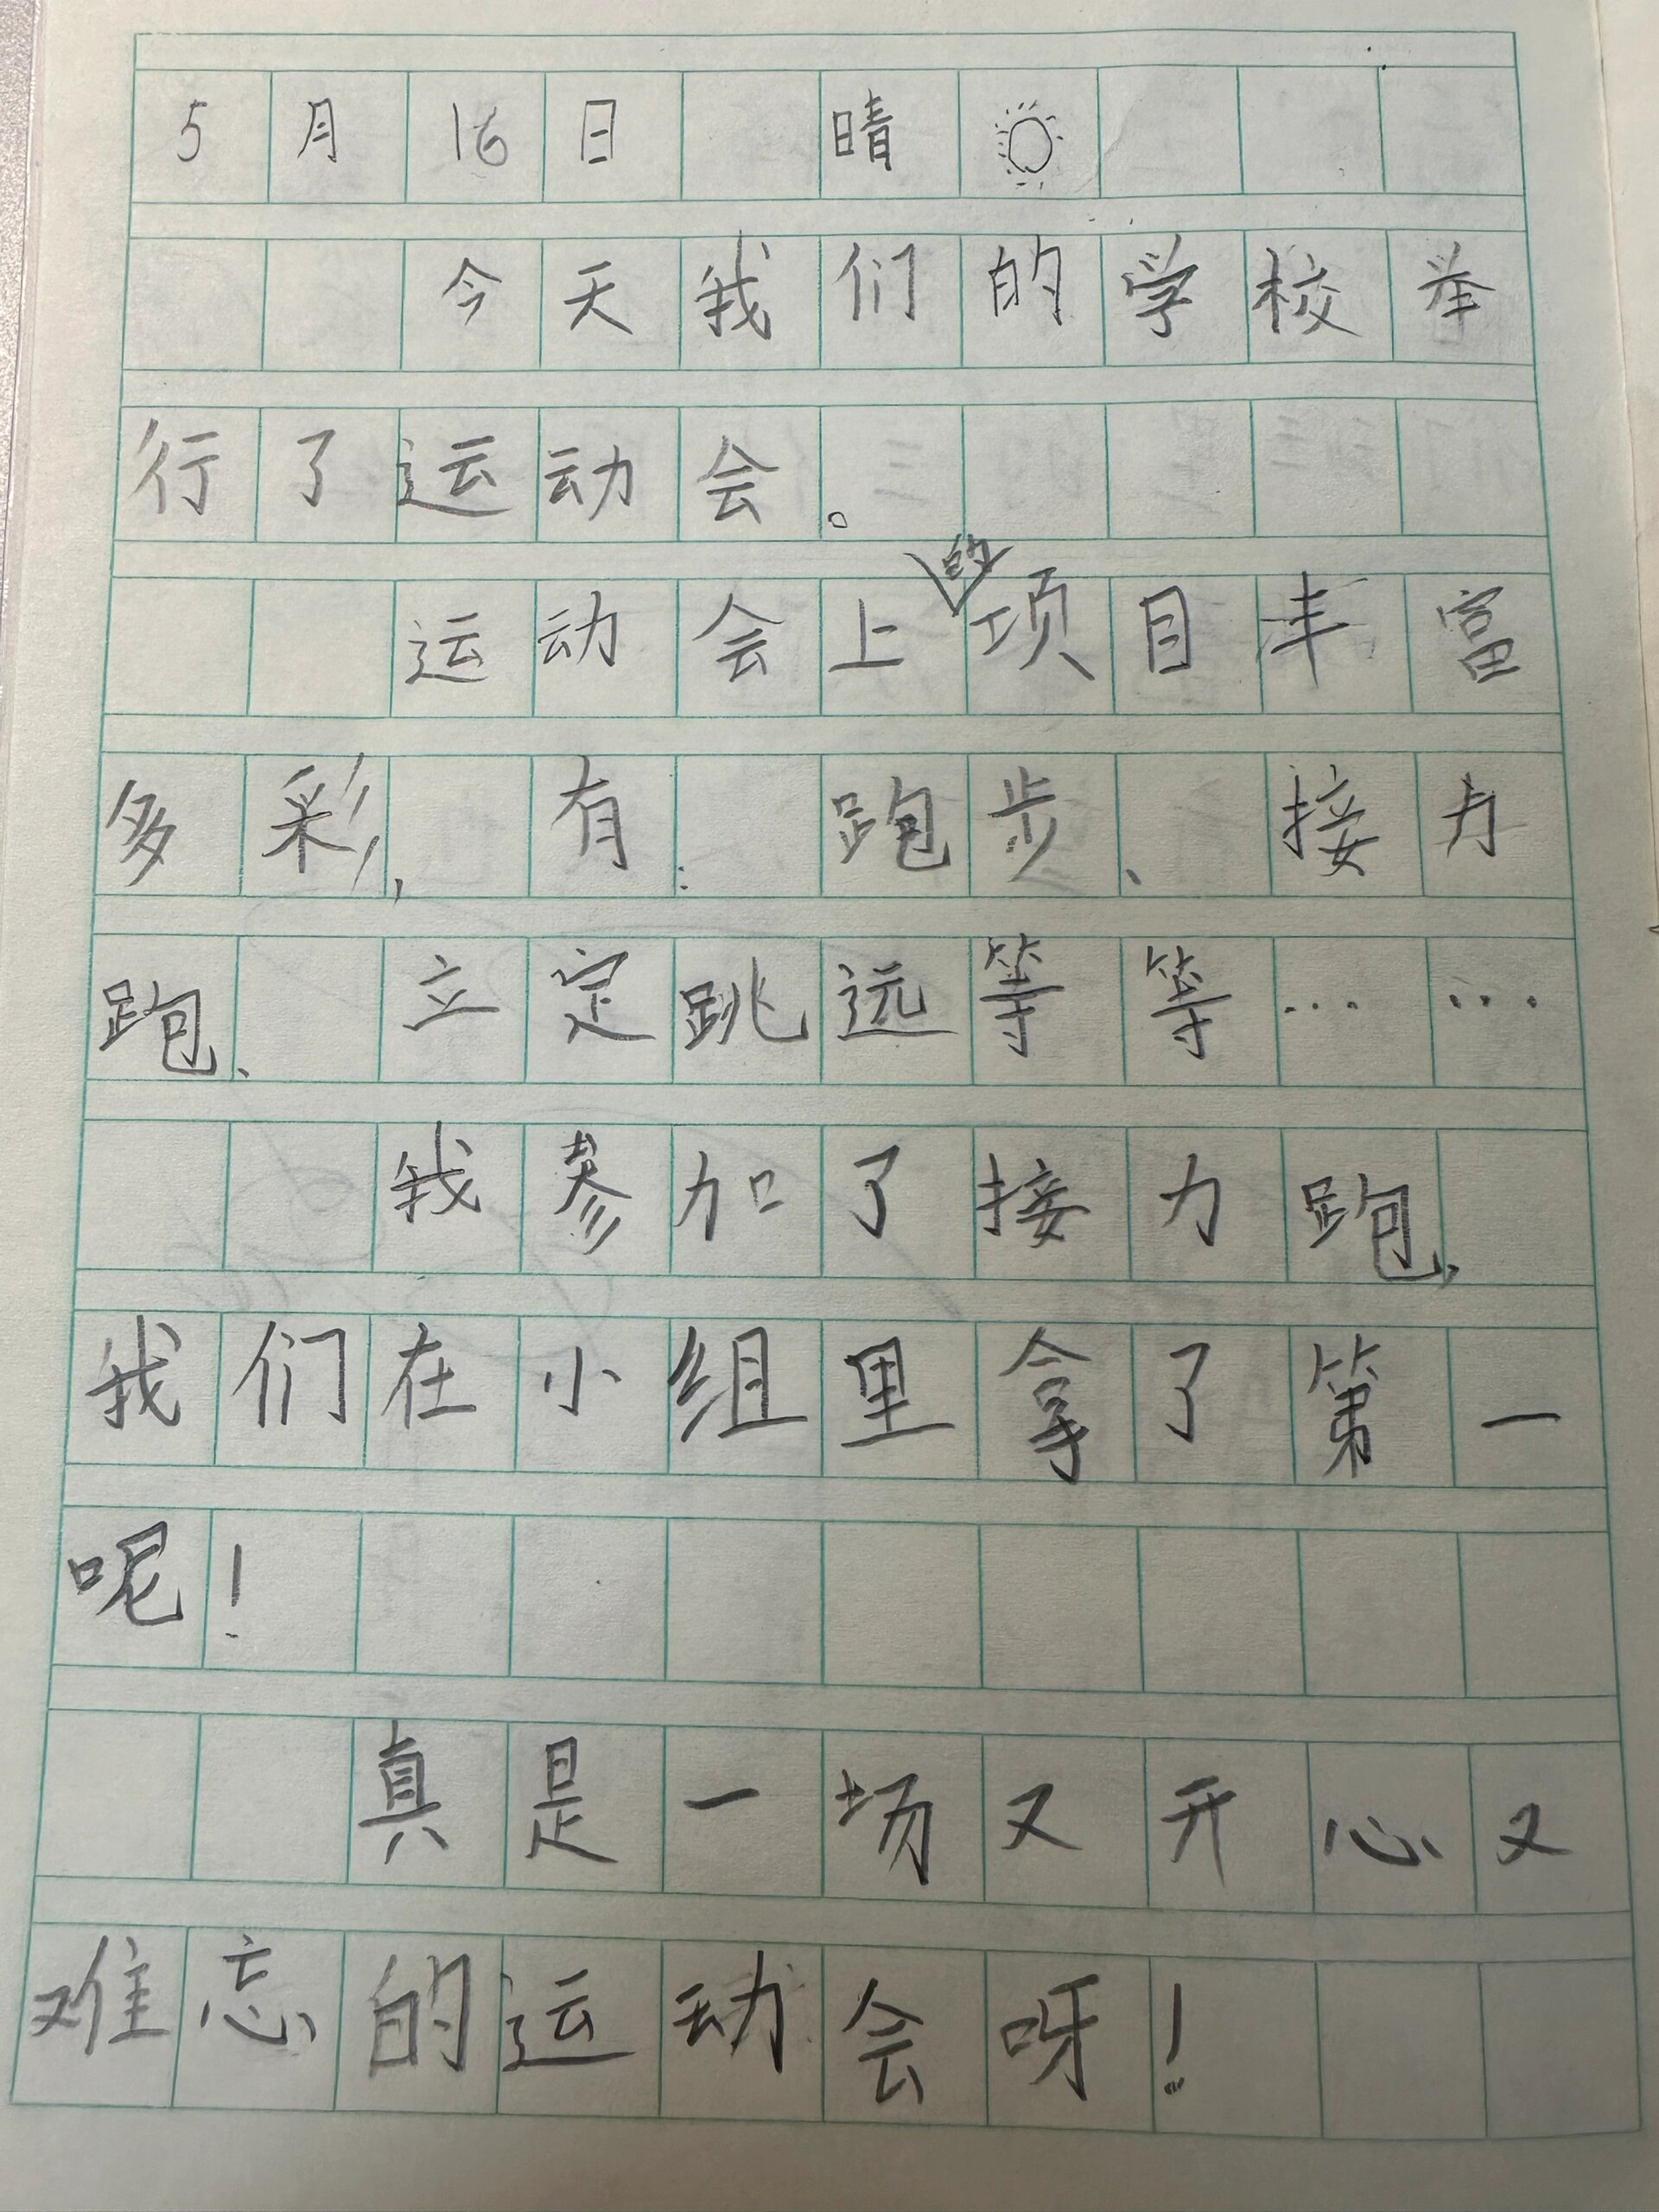 5月16日 晴
今天我们的学校举
行了运动会。
运动会上的项目丰富
多彩,有:跑步、接力
跑、立定跳远等等……
我参加了接力跑,
我们在小组里拿了第一
呢!
真是一场又开心又
难忘的运动会呀!